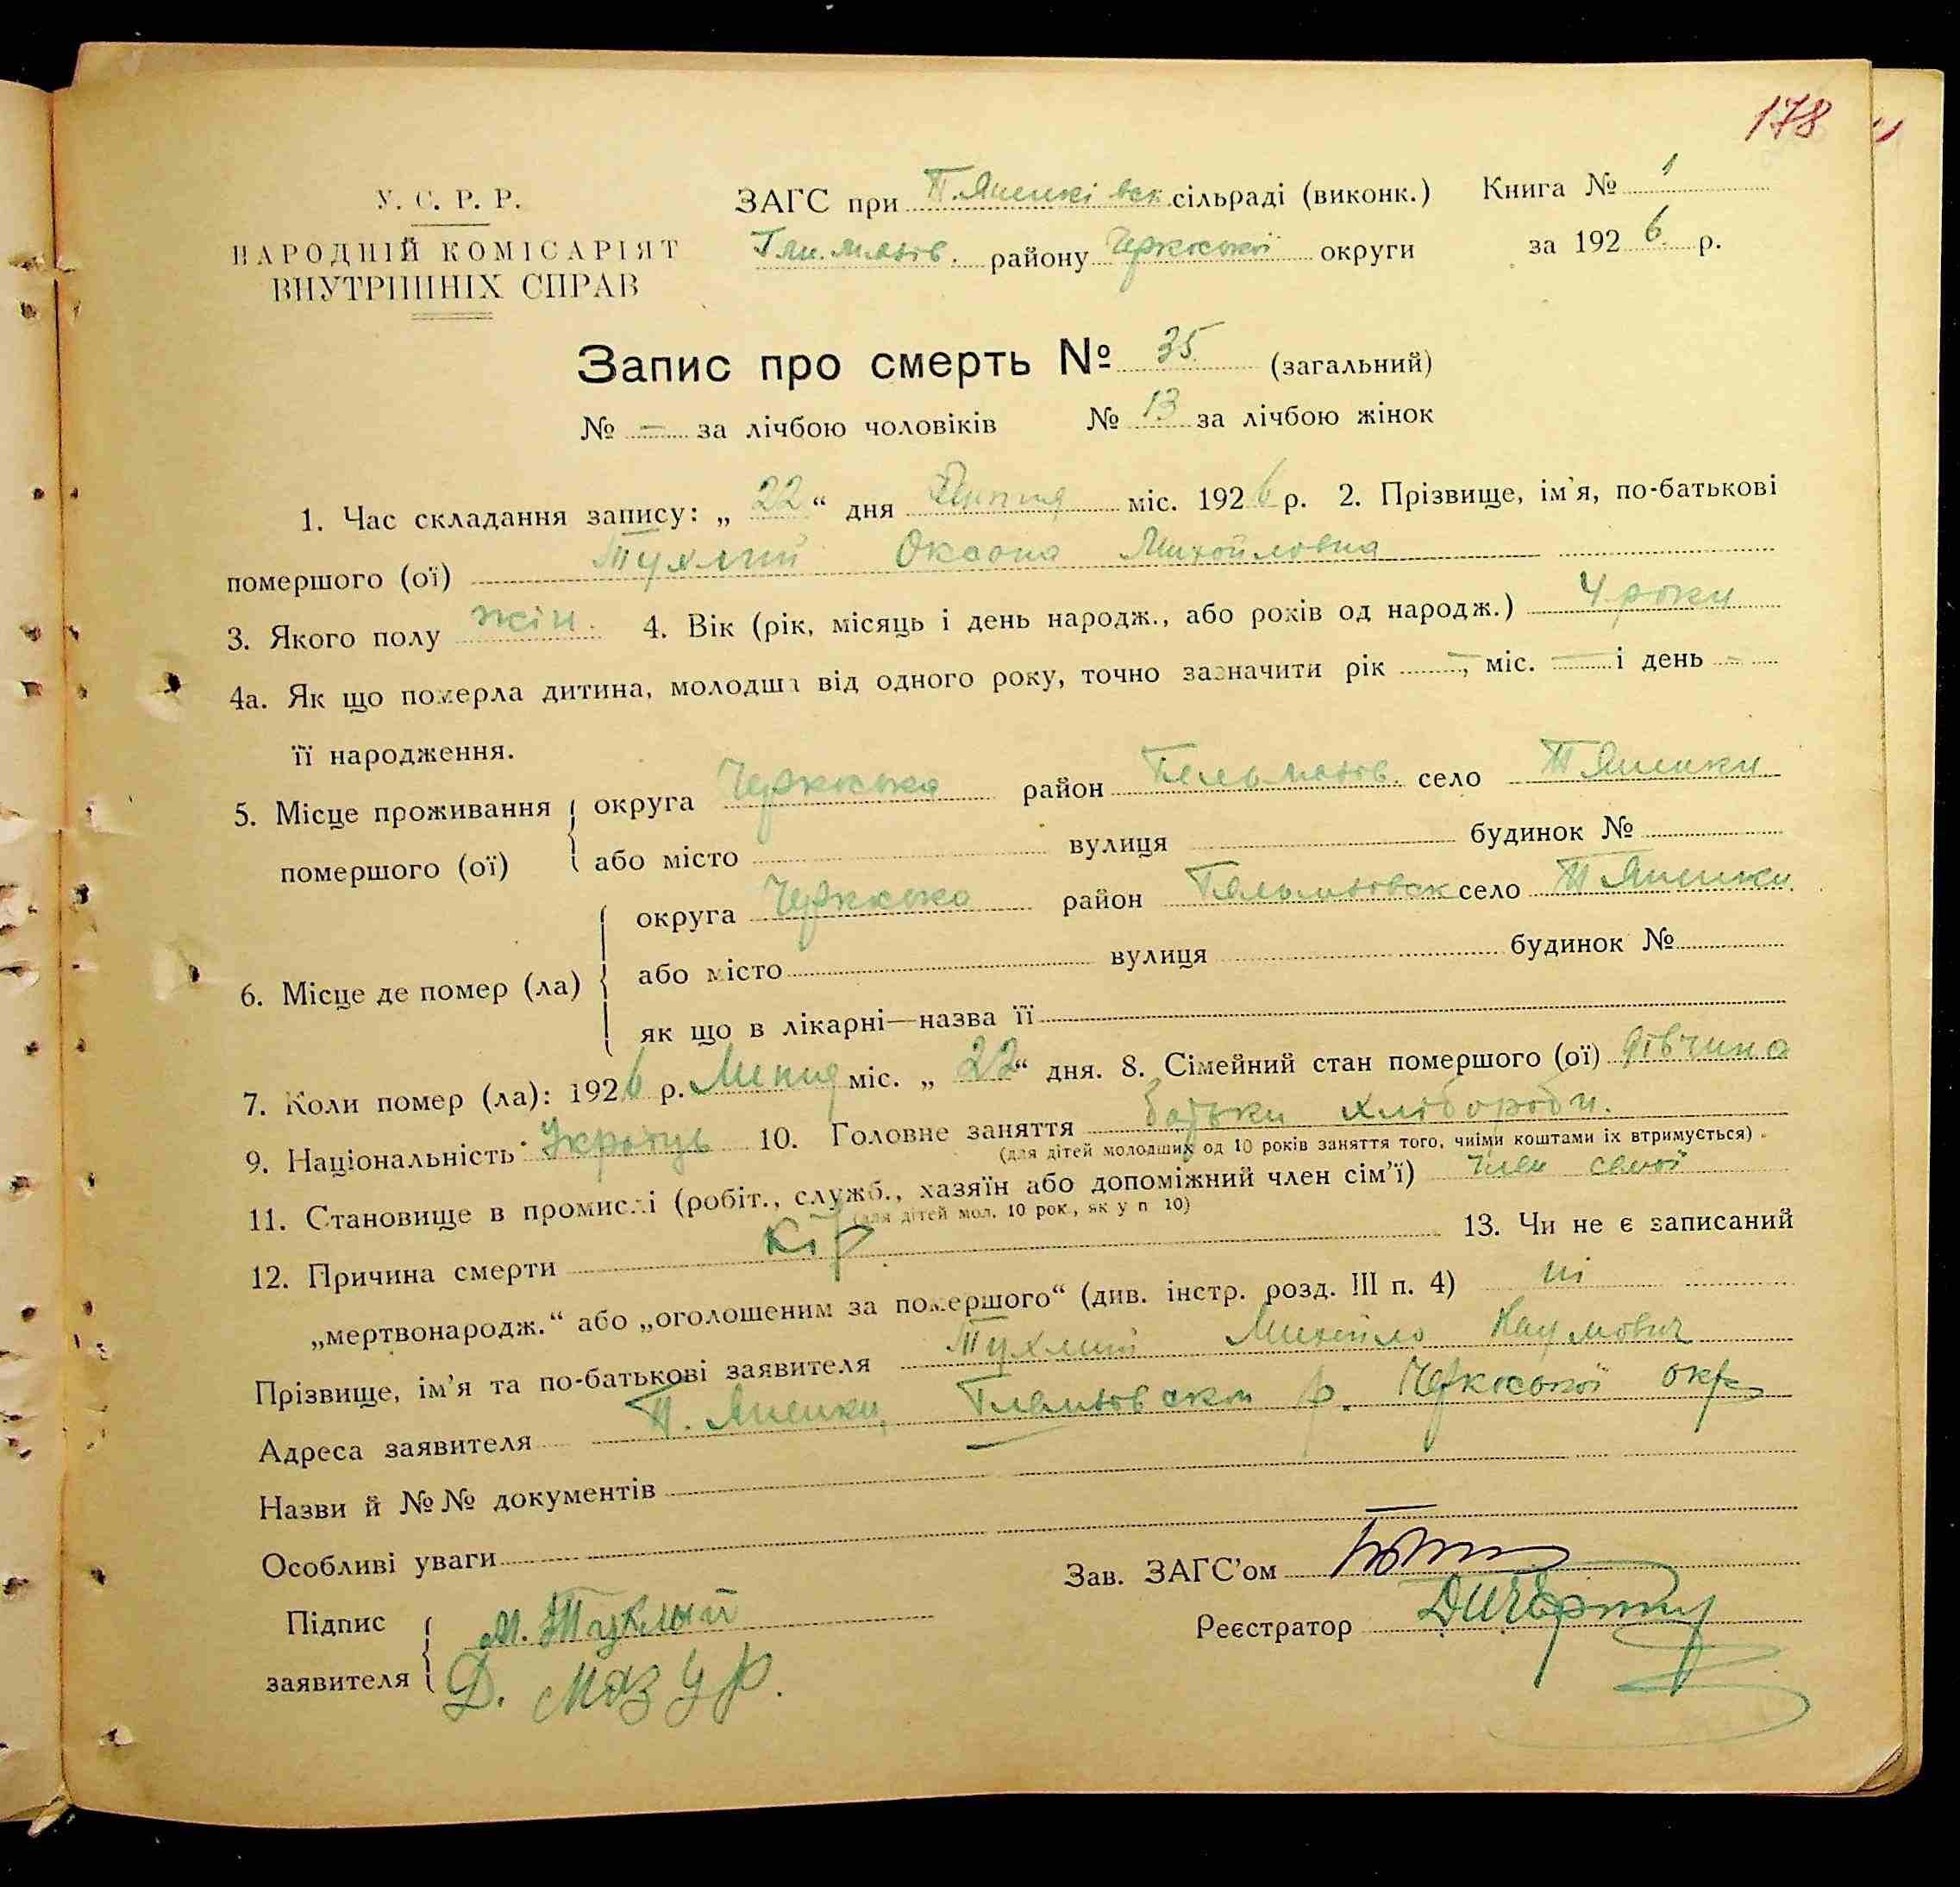 178
У. С. Р. Р.
НАРОДНІЙ КОМІСАРІЯТ
ВНУТРІШНІХ СПРАВ
ЗАГС при Т. Яненківск. сільраді (виконк.) Книга № 1
району Черкоської округи за 1926 р.
Запис про смерть № 35 (загальний)
№ — за лічбою чоловіків № 13 за лічбою жінок
1. Час складання запису: „ 22 “ дня Липня міс. 1926 р. 2. Прізвище, ім'я, по-батькові
помершого (ої) Тухлий Оксона Михойловна
3. Якого полу жін. 4. Вік (рік, місяць і день народж., або років од народж.) 4 роки
4а. Як що померла дитина, молодша від одного року, точно зазначити рік —, міс. — і день —
її народження.
5. Місце проживання помершого (ої) округа Черкоська район село Т Яненки
або місто вулиця будинок №
6. Місце де помер (ла) округа Черкоська район село Т Яненки
або місто вулиця будинок №
як що в лікарні—назва її
7. Коли помер (ла): 1926 р. Липня міс. „ 22 “ дня. 8. Сімейний стан помершого (ої) дівчина
9. Національність Українць 10. Головне заняття батьки хлібороби.
(для дітей молодших од 10 років заняття того, чиїми коштами їх втримується)
11. Становище в промислі (робіт., служб., хазяїн або допоміжний член сім'ї) член семї
(для дітей мол. 10 рок., як у п 10)
12. Причина смерти Кір 13. Чи не є записаний
„мертвонародж.“ або „оголошеним за помершого“ (див. інстр. розд. III п. 4) ні
Прізвище, ім'я та по-батькові заявителя Тухлий Михайло Наумович
Адреса заявителя Т. Яненки, р. Черкоської окр
Назви й №№ документів
Особливі уваги
Зав. ЗАГС'ом
Підпис заявителя М. Тухлый
Реєстратор
Д. Мазур.